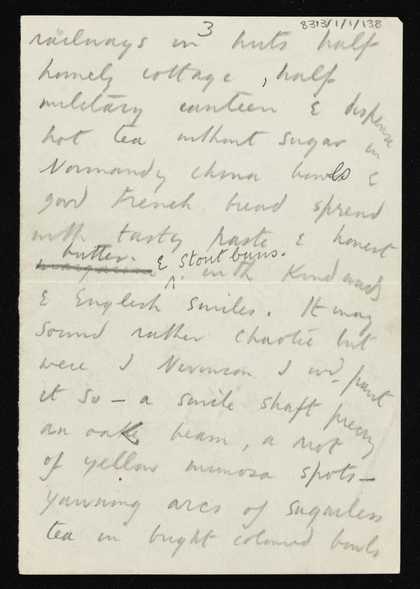 8313/1/1/138
3
railways in huts half
homely cottage, half
military canteen & dispense
hot tea without sugar in
Normandy china bowls &
good French bread spread
with tasty paste & honest
butter. & stout buns.
with kind words
& English smiles. It may
sound rather chaotic but
were I Nevinson I wd paint
it so — a smile shaft piercing
an oak beam, a riot
of yellow mimosa spots —
yawning arcs of sugarless
tea in bright coloured bowls